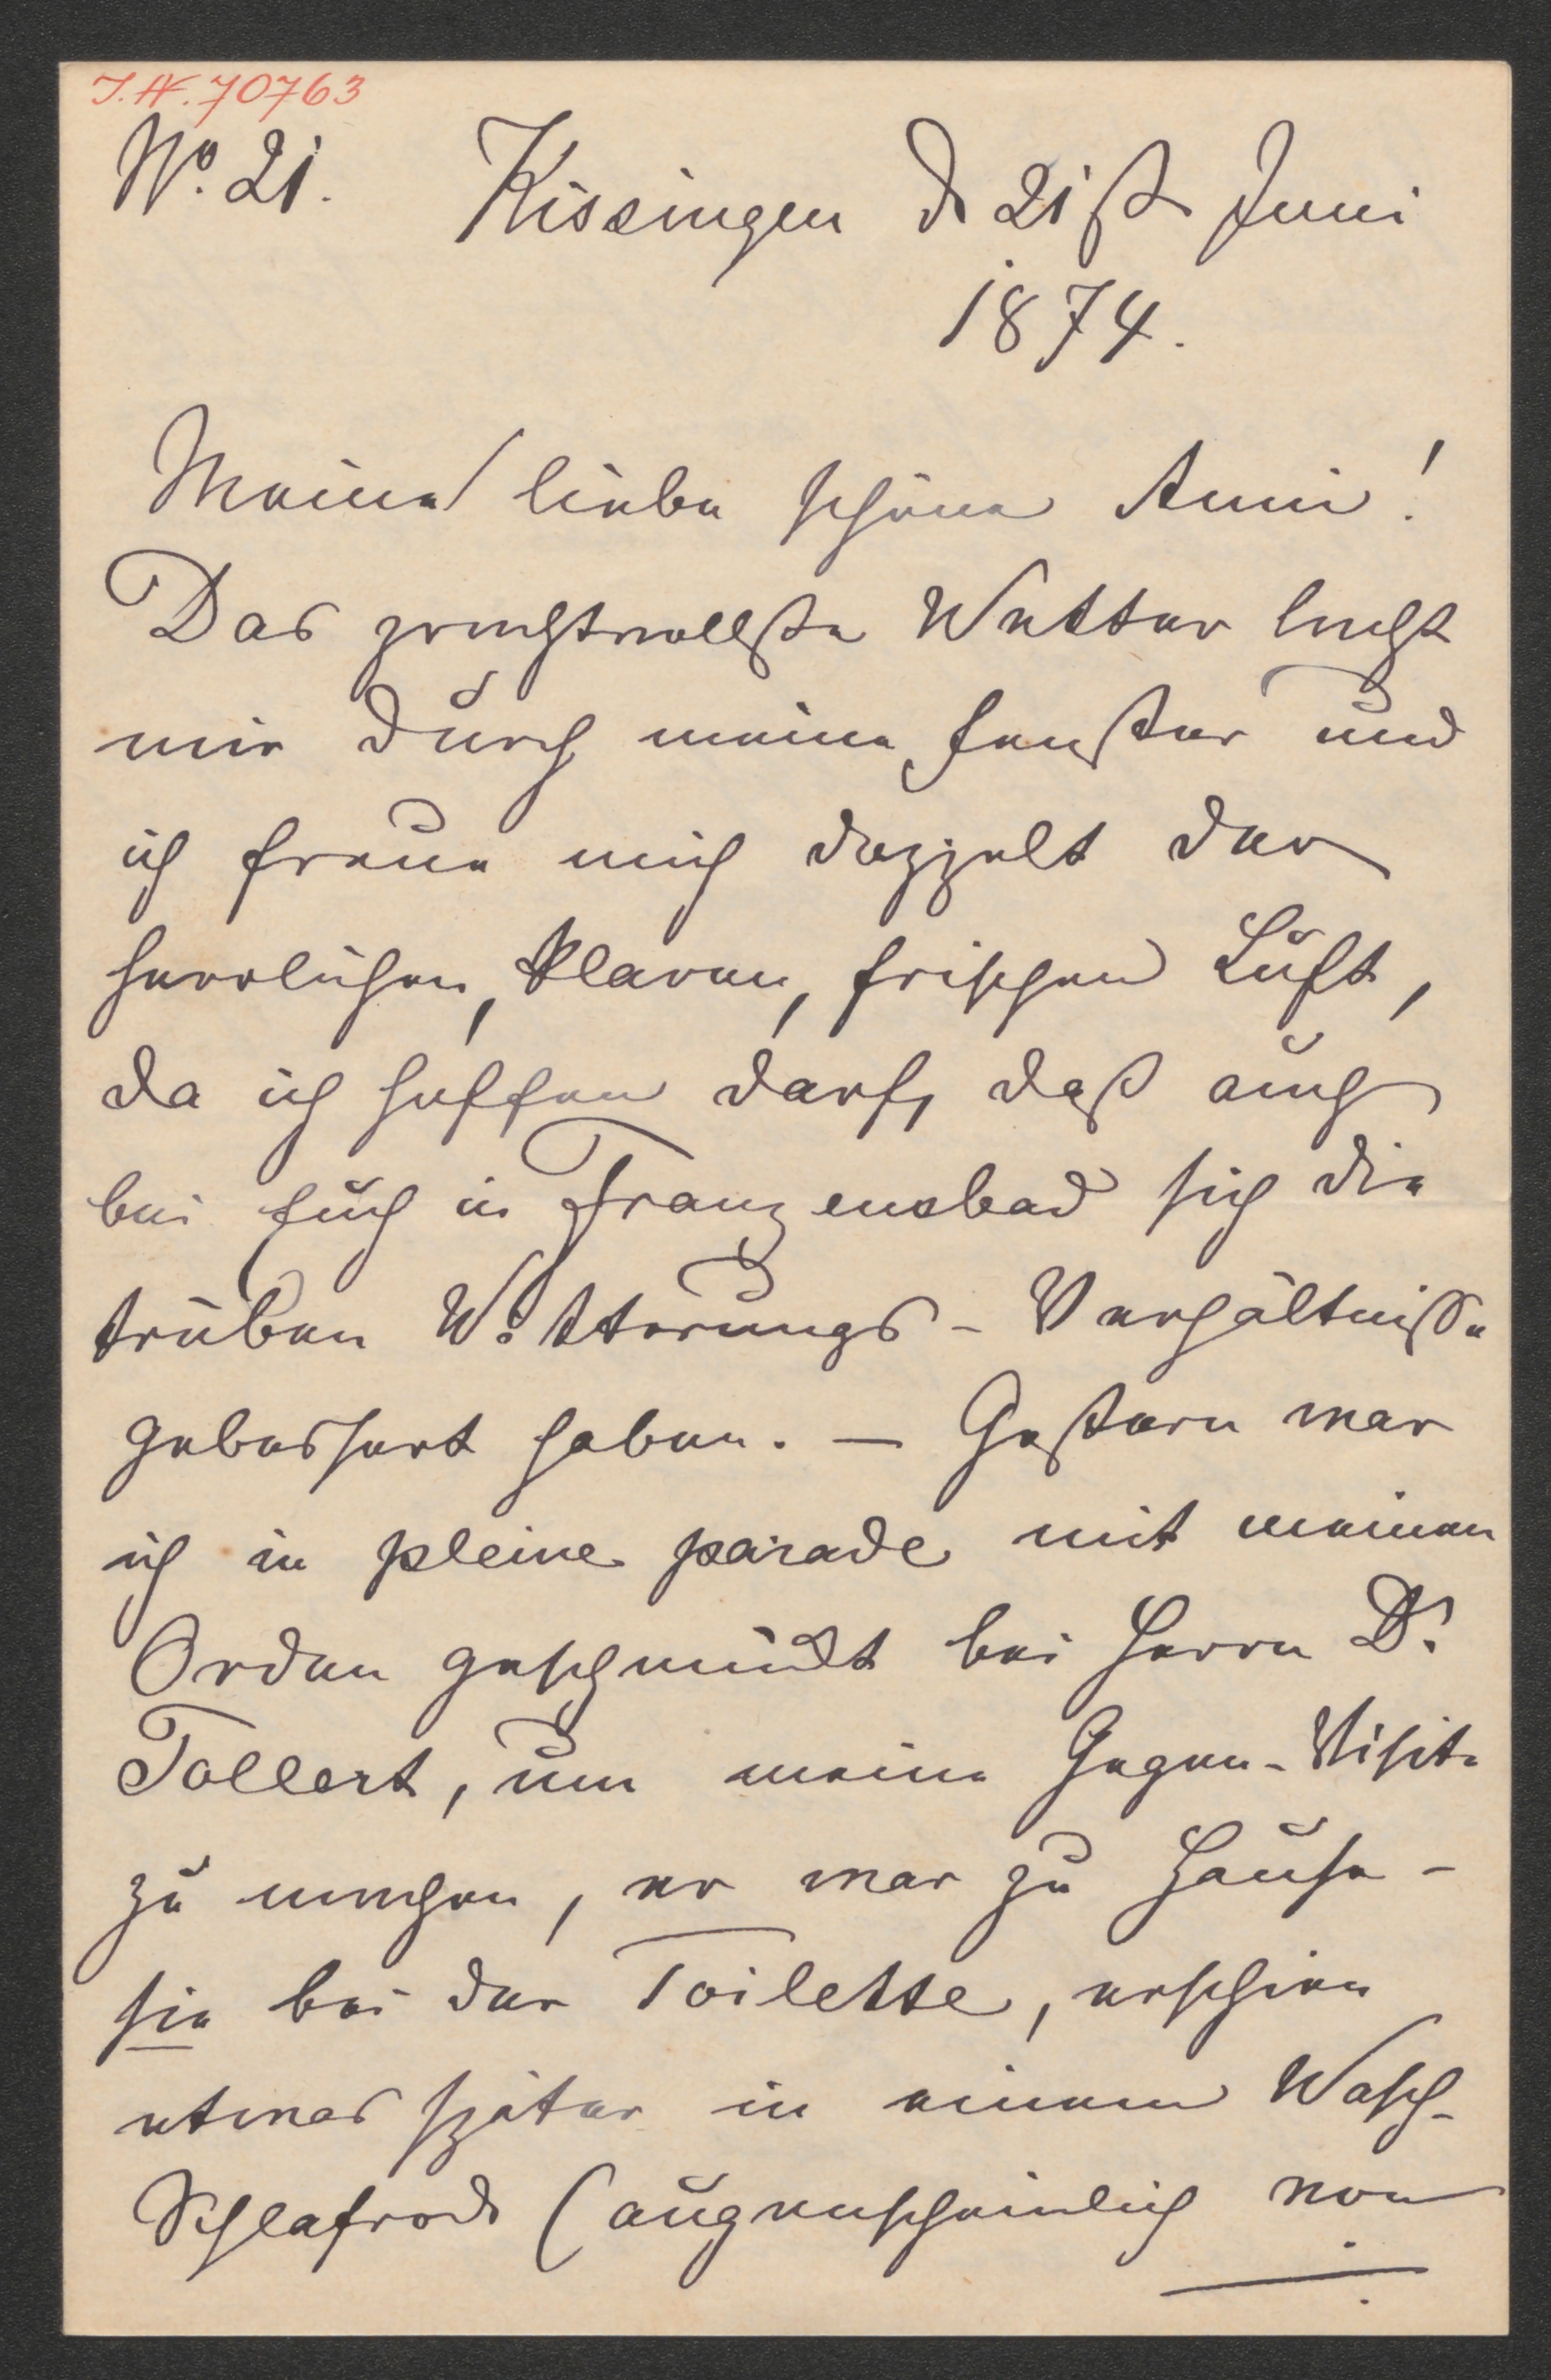 I.N. 70763
No. 21. Kissingen d 21st Juni
1874.
Meine liebe schöne Anni!
Das prachtvollste Wetter lacht
mir durch meine Fenster und
ich freue mich doppelt der
herrlichen, klaren, frischen Luft,
da ich hoffen darf, daß auch
bei Euch in Franzensbad sich die
trüben Witterungs-Verhältnisse
gebessert haben. — Gestern war
ich in pleine parade mit meinen
Orden geschmückt bei Herrn Dr.
Tollert, um meine Gegen-Visite
zu machen, er war zu Hause -
sie bei der Toilette, erschien
etwas später in einem Wasch-
Schlafrock (augenscheinlich von